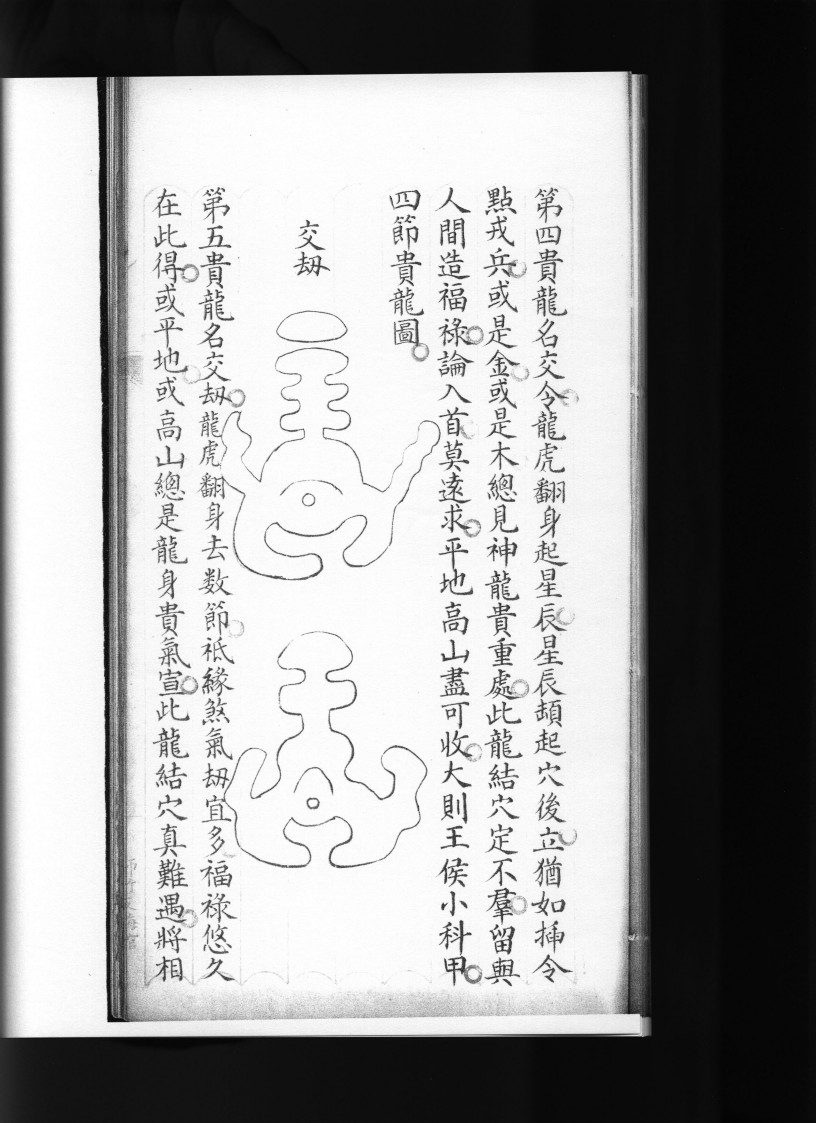 第四貴龍名交令龍虎翻身起星辰星辰頭起穴後立猶如揷令
點戎兵或是金或是木總見神龍貴重處此龍結穴定不羣留與
人間造福祿論入首莫遠求平地高山盡可收大則王侯小科甲
四節貴龍圖
交刼
第五貴龍名交刼龍虎翻身去数節祗緣煞氣刼宜多福祿悠久
在此得或平地或高山總是龍身貴氣宣此龍結穴真難遇將相